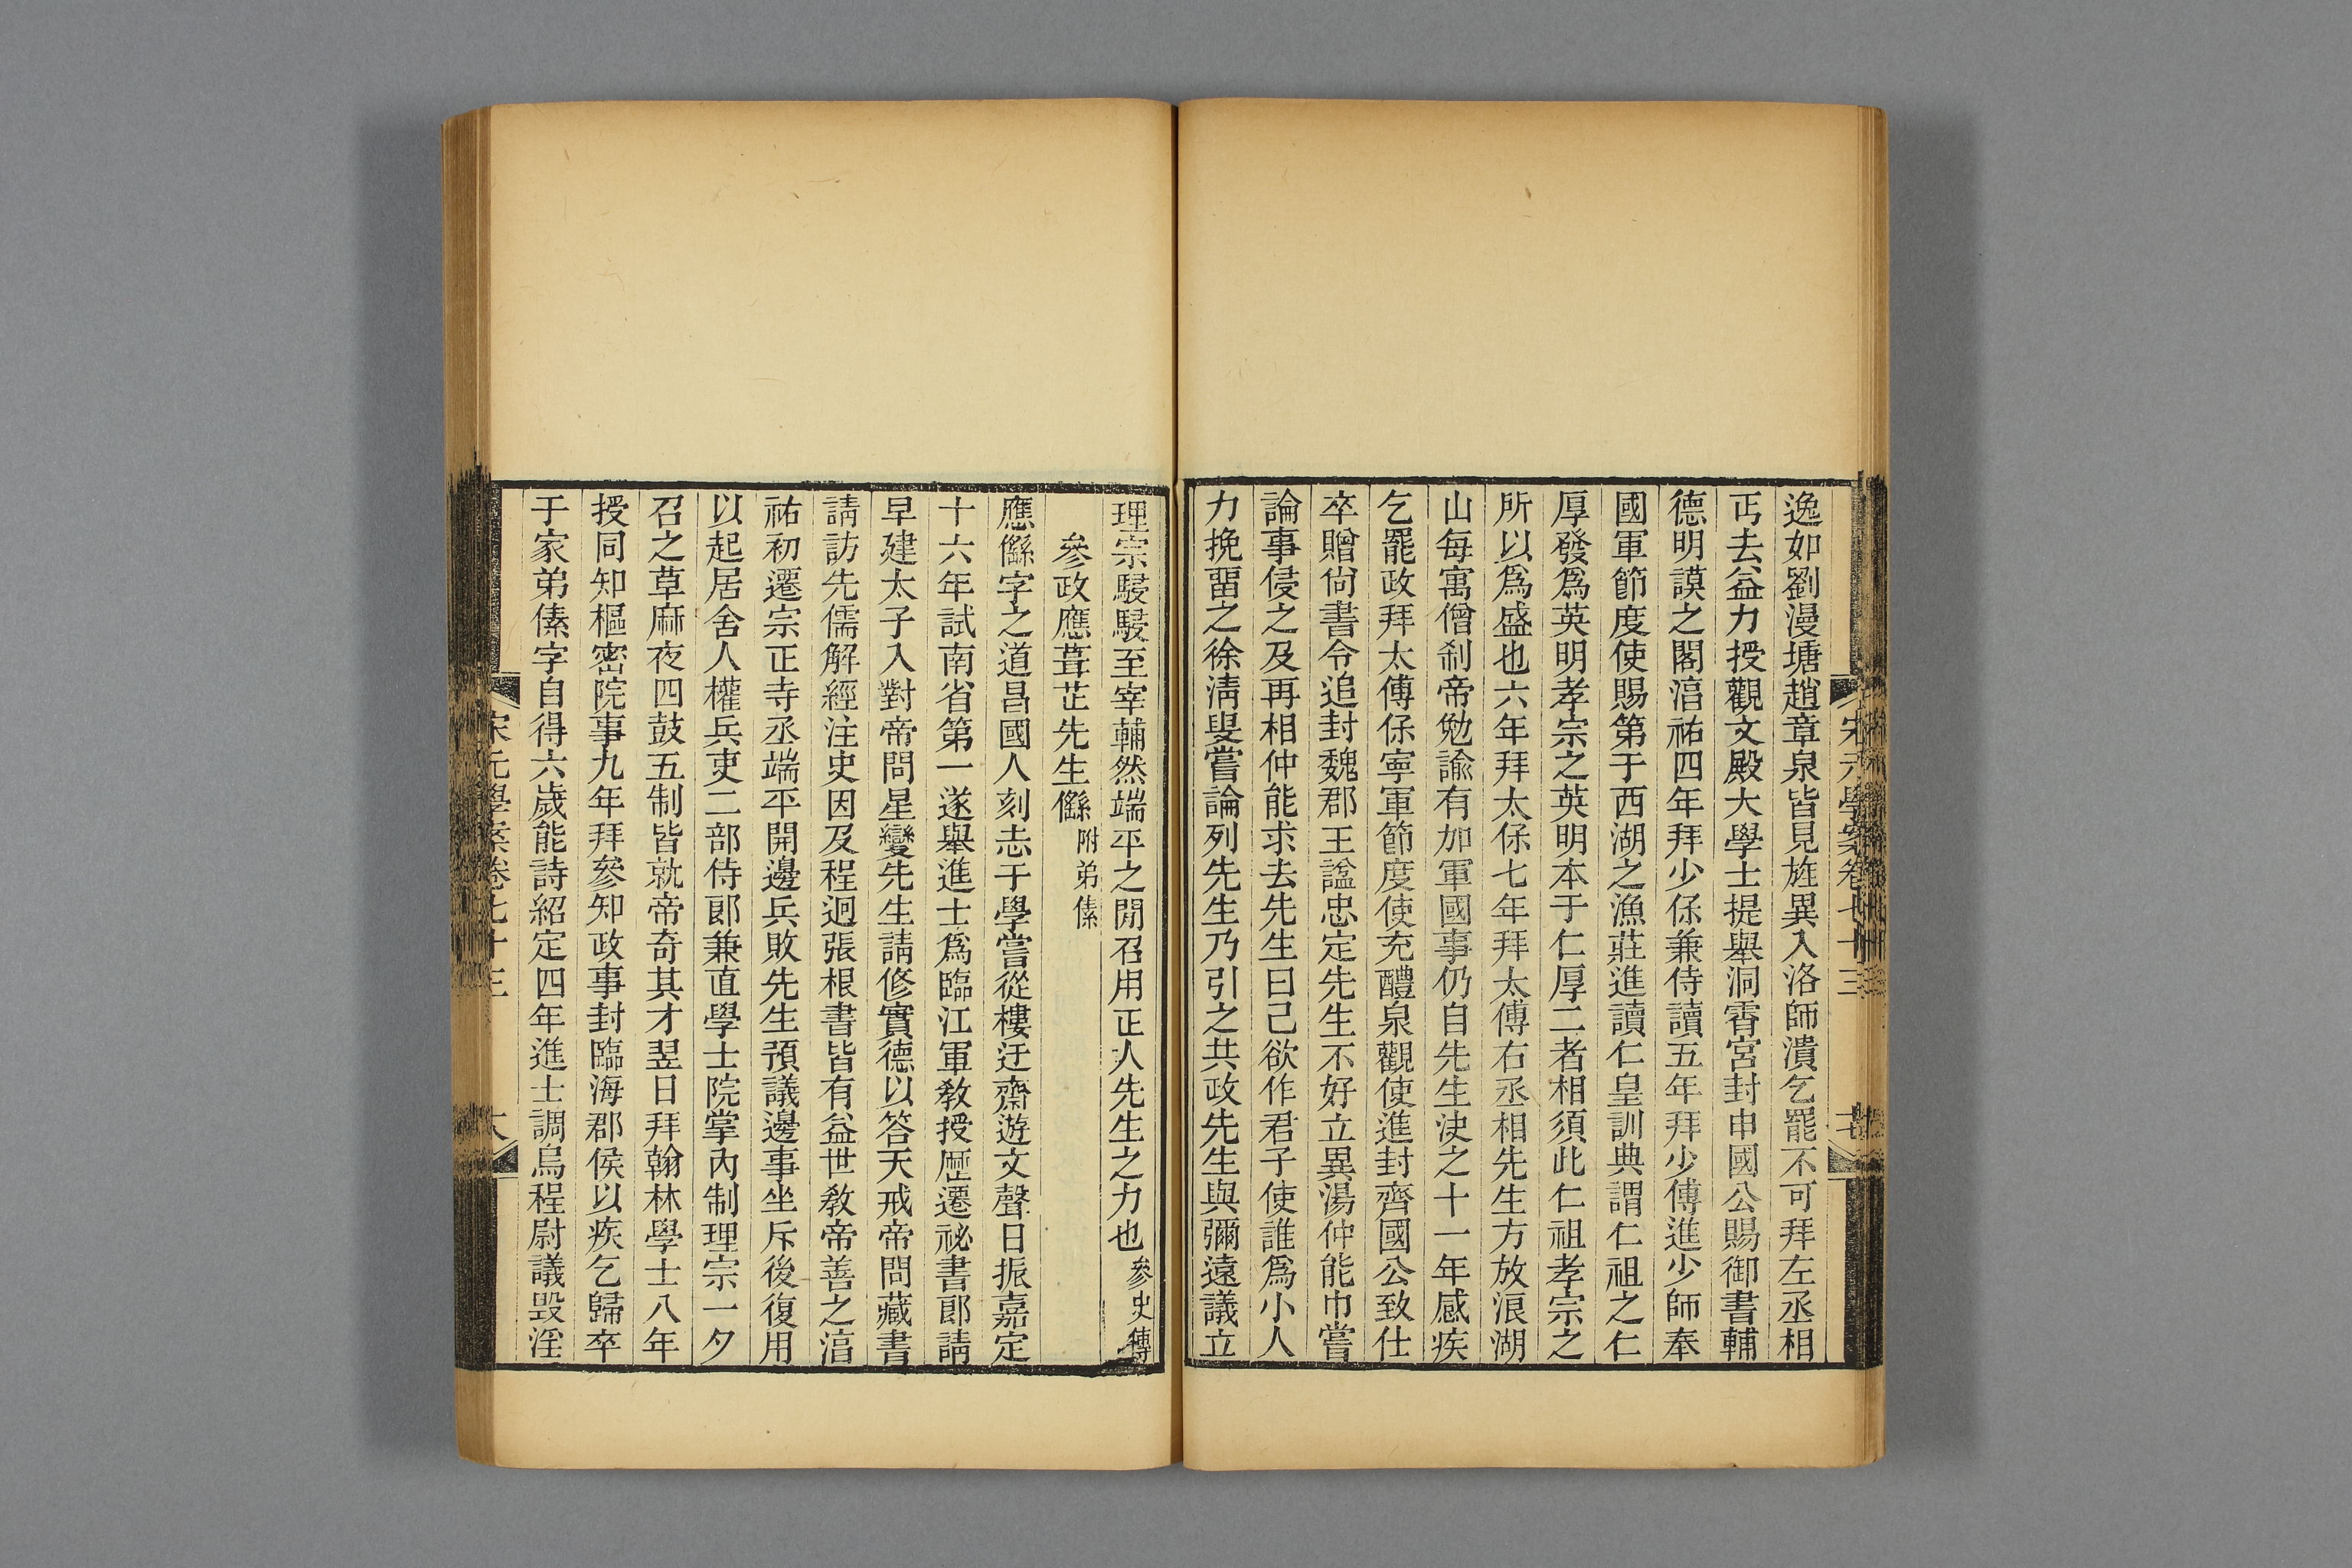 宋元學案卷七十三
逸如劉漫塘趙章泉皆見旌異入洛師潰乞罷不可拜左丞相
丐去益力授觀文殿大學士提舉洞霄宮封申國公賜御書輔
德明謨之閣湻祐四年拜少保兼侍讀五年拜少傅進少師奉
國軍節度使賜第于西湖之漁莊進讀仁皇訓典謂仁祖之仁
厚發爲英明孝宗之英明本于仁厚二者相須此仁祖孝宗之
所以爲盛也六年拜太保七年拜太傅右丞相先生方放浪湖
山每寓僧剎帝勉諭有加軍國事仍自先生決之十一年感疾
乞罷政拜太傅保寧軍節度使充醴泉觀使進封齊國公致仕
卒贈尙書令追封魏郡王諡忠定先生不好立異湯仲能巾嘗
論事侵之及再相仲能求去先生曰己欲作君子使誰爲小人
力挽畱之徐淸叟嘗論列先生乃引之共政先生與彌遠議立
理宗駸駸至宰輔然端平之閒召用正人先生之力也參史傳
參政應葺芷先生㒡附弟傃
應㒡字之道昌國人刻志于學嘗從樓迂齋遊文聲日振嘉定
十六年試南省第一遂舉進士爲臨江軍敎授歷遷祕書郞請
早建太子入對帝問星變先生請修實德以答天戒帝問藏書
請訪先儒解經注史因及程迥張根書皆有益世敎帝善之湻
祐初遷宗正寺丞端平開邊兵敗先生預議邊事坐斥後復用
以起居舍人權兵吏二部侍郞兼直學士院掌內制理宗一夕
召之草麻夜四鼓五制皆就帝奇其才翌日拜翰林學士八年
授同知樞密院事九年拜參知政事封臨海郡侯以疾乞歸卒
于家弟傃字自得六歲能詩紹定四年進士調烏程尉議毀淫
宋元學案卷七十三